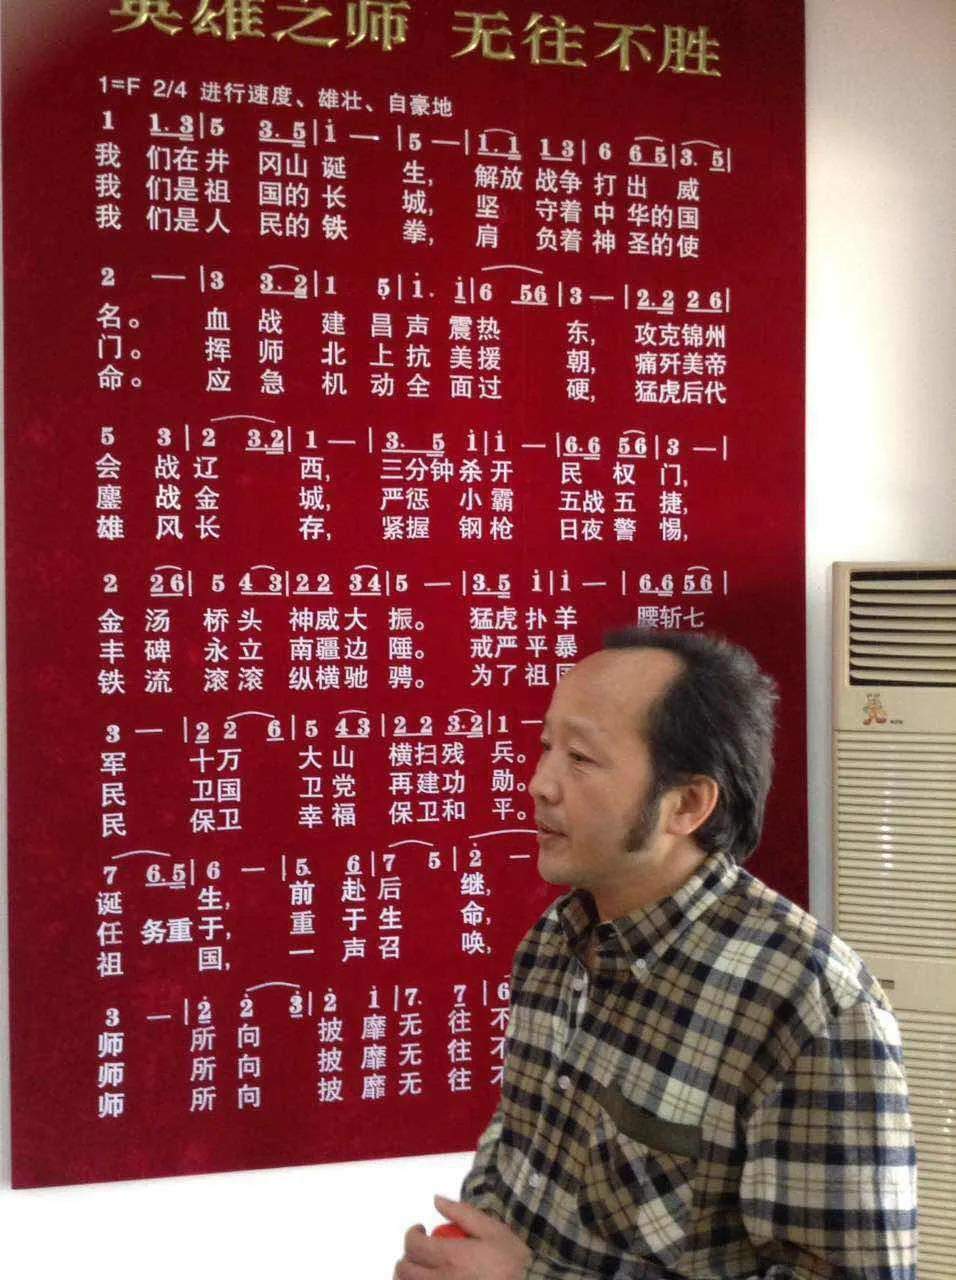 英雄之师 无往不胜
1=F 2/4 进行速度、雄壮、自豪地
1 1.3|5 3.5|i —|5 —|1.1 13|6 65|3.5|
我们在井冈山诞生，解放战争打出威
我们是祖国的长城，坚守着中华的国
我们是人民的铁拳，肩负着神圣的使
2 —|3 3.2|1 5|i. i|6 56|3 —|2.2 26|
名。血战建昌声震热东，攻克锦州
门。挥师北上抗美援朝，痛歼美帝
命。应急机动全面过硬，猛虎后代
5 3|2 3.2|1 —|3. 5 i|i —|6.6 56|3 —|
会战辽西，三分钟杀开民权门，
鏖战金城，严惩小霸五战五捷，
雄风长存，紧握钢枪日夜警惕，
2 26|5 43|22 34|5 —|3.5 i|i —|6.6 56|
金汤桥头神威大振。猛虎扑羊腰斩七
丰碑永立南疆边陲。戒严平暴
铁流滚滚纵横驰骋。为了祖国
3 —|2 2 6|5 43|22 3.2|1 —
军十万大山横扫残兵。
民卫国卫党再建功勋。
民保卫幸福保卫和平。
7 6.5|6 —|5. 6|7 5|2 —
诞生，前赴后继，
任务重于，重于生命，
祖国，一声召唤，
3 —|2 2 3|2 i|7. 7|6
师所向披靡无往不
师所向披靡无往不
师所向披靡无往不